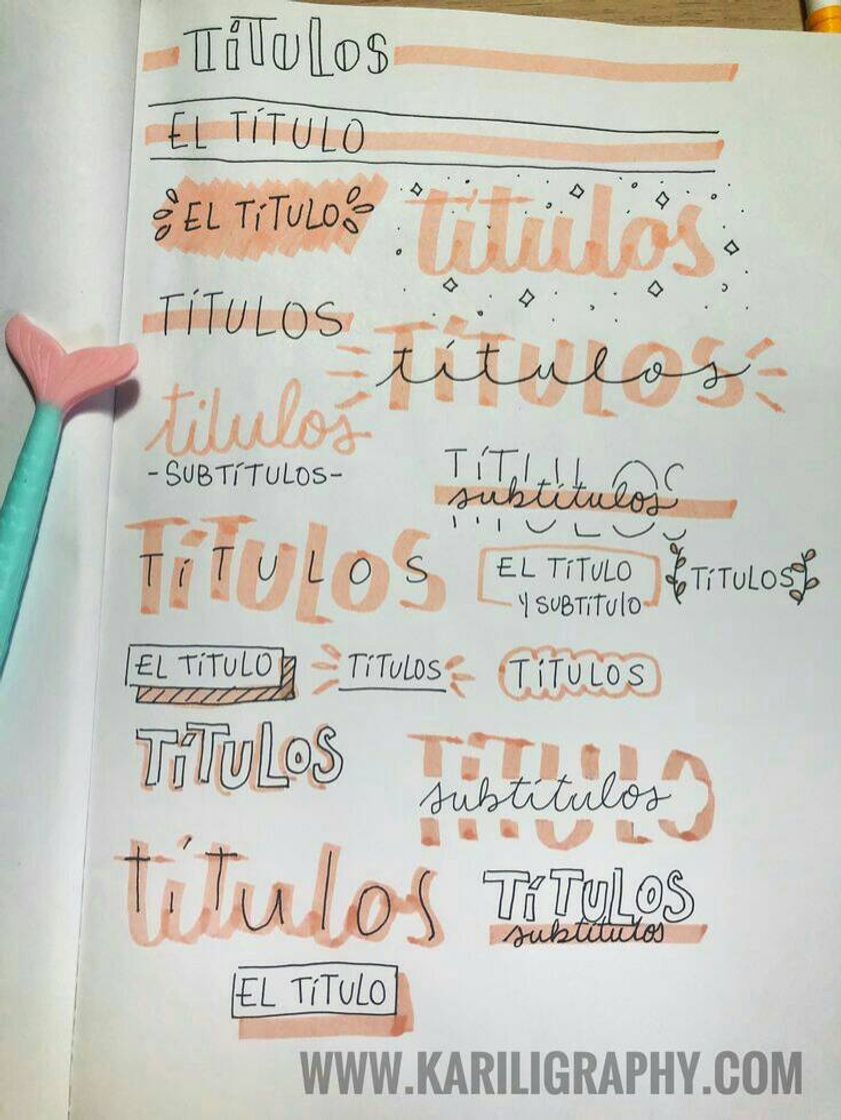 TÍTULOS
EL TÍTULO
EL TÍTULO
títulos
TÍTULOS
TÍTULOS
títulos
titulos
-SUBTÍTULOS-
TÍTULOS
subtítulos
TÍTULOS
TÍTULOS
EL TÍTULO
Y SUBTÍTULO
TÍTULOS
EL TÍTULO
TÍTULOS
TÍTULOS
TÍTULOS
TÍTULO
subtítulos
títulos
títulos
TÍTULOS
subtítulos
EL TÍTULO
WWW.KARILIGRAPHY.COM